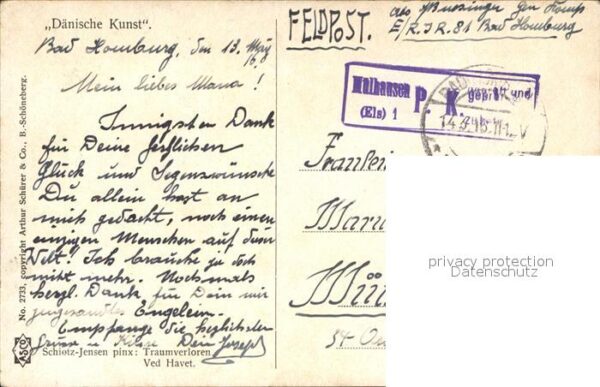 „Dänische Kunst".
Bad Homburg, den 13. März
16.
Mein liebes Mama!
Innigsten Dank
für Deine herzlichen
Glück und Segenswünsche
Du allein hast an
mich gedacht, noch einen
einzigen Menschen auf dieser
Welt! Ich brauche ja doch
nicht mehr. Nochmals
herzl. Dank für Dein mir
zugesandtes Engelein.
Empfange die herzlichsten
Grüsse u. Küsse Dein Joseph
Schiotz-Jensen pinx: Traumverloren.
Ved Havet.
No. 2733, copyright Arthur Schürer & Co., B.-Schöneberg.
ASCO
FELDPOST.
Abs. Gen. Komp
E/R.I.R. 81 Bad Homburg
Mülhausen P. K. geprüft und
(Els) 1
Fräulein
St-
privacy protection
Datenschutz